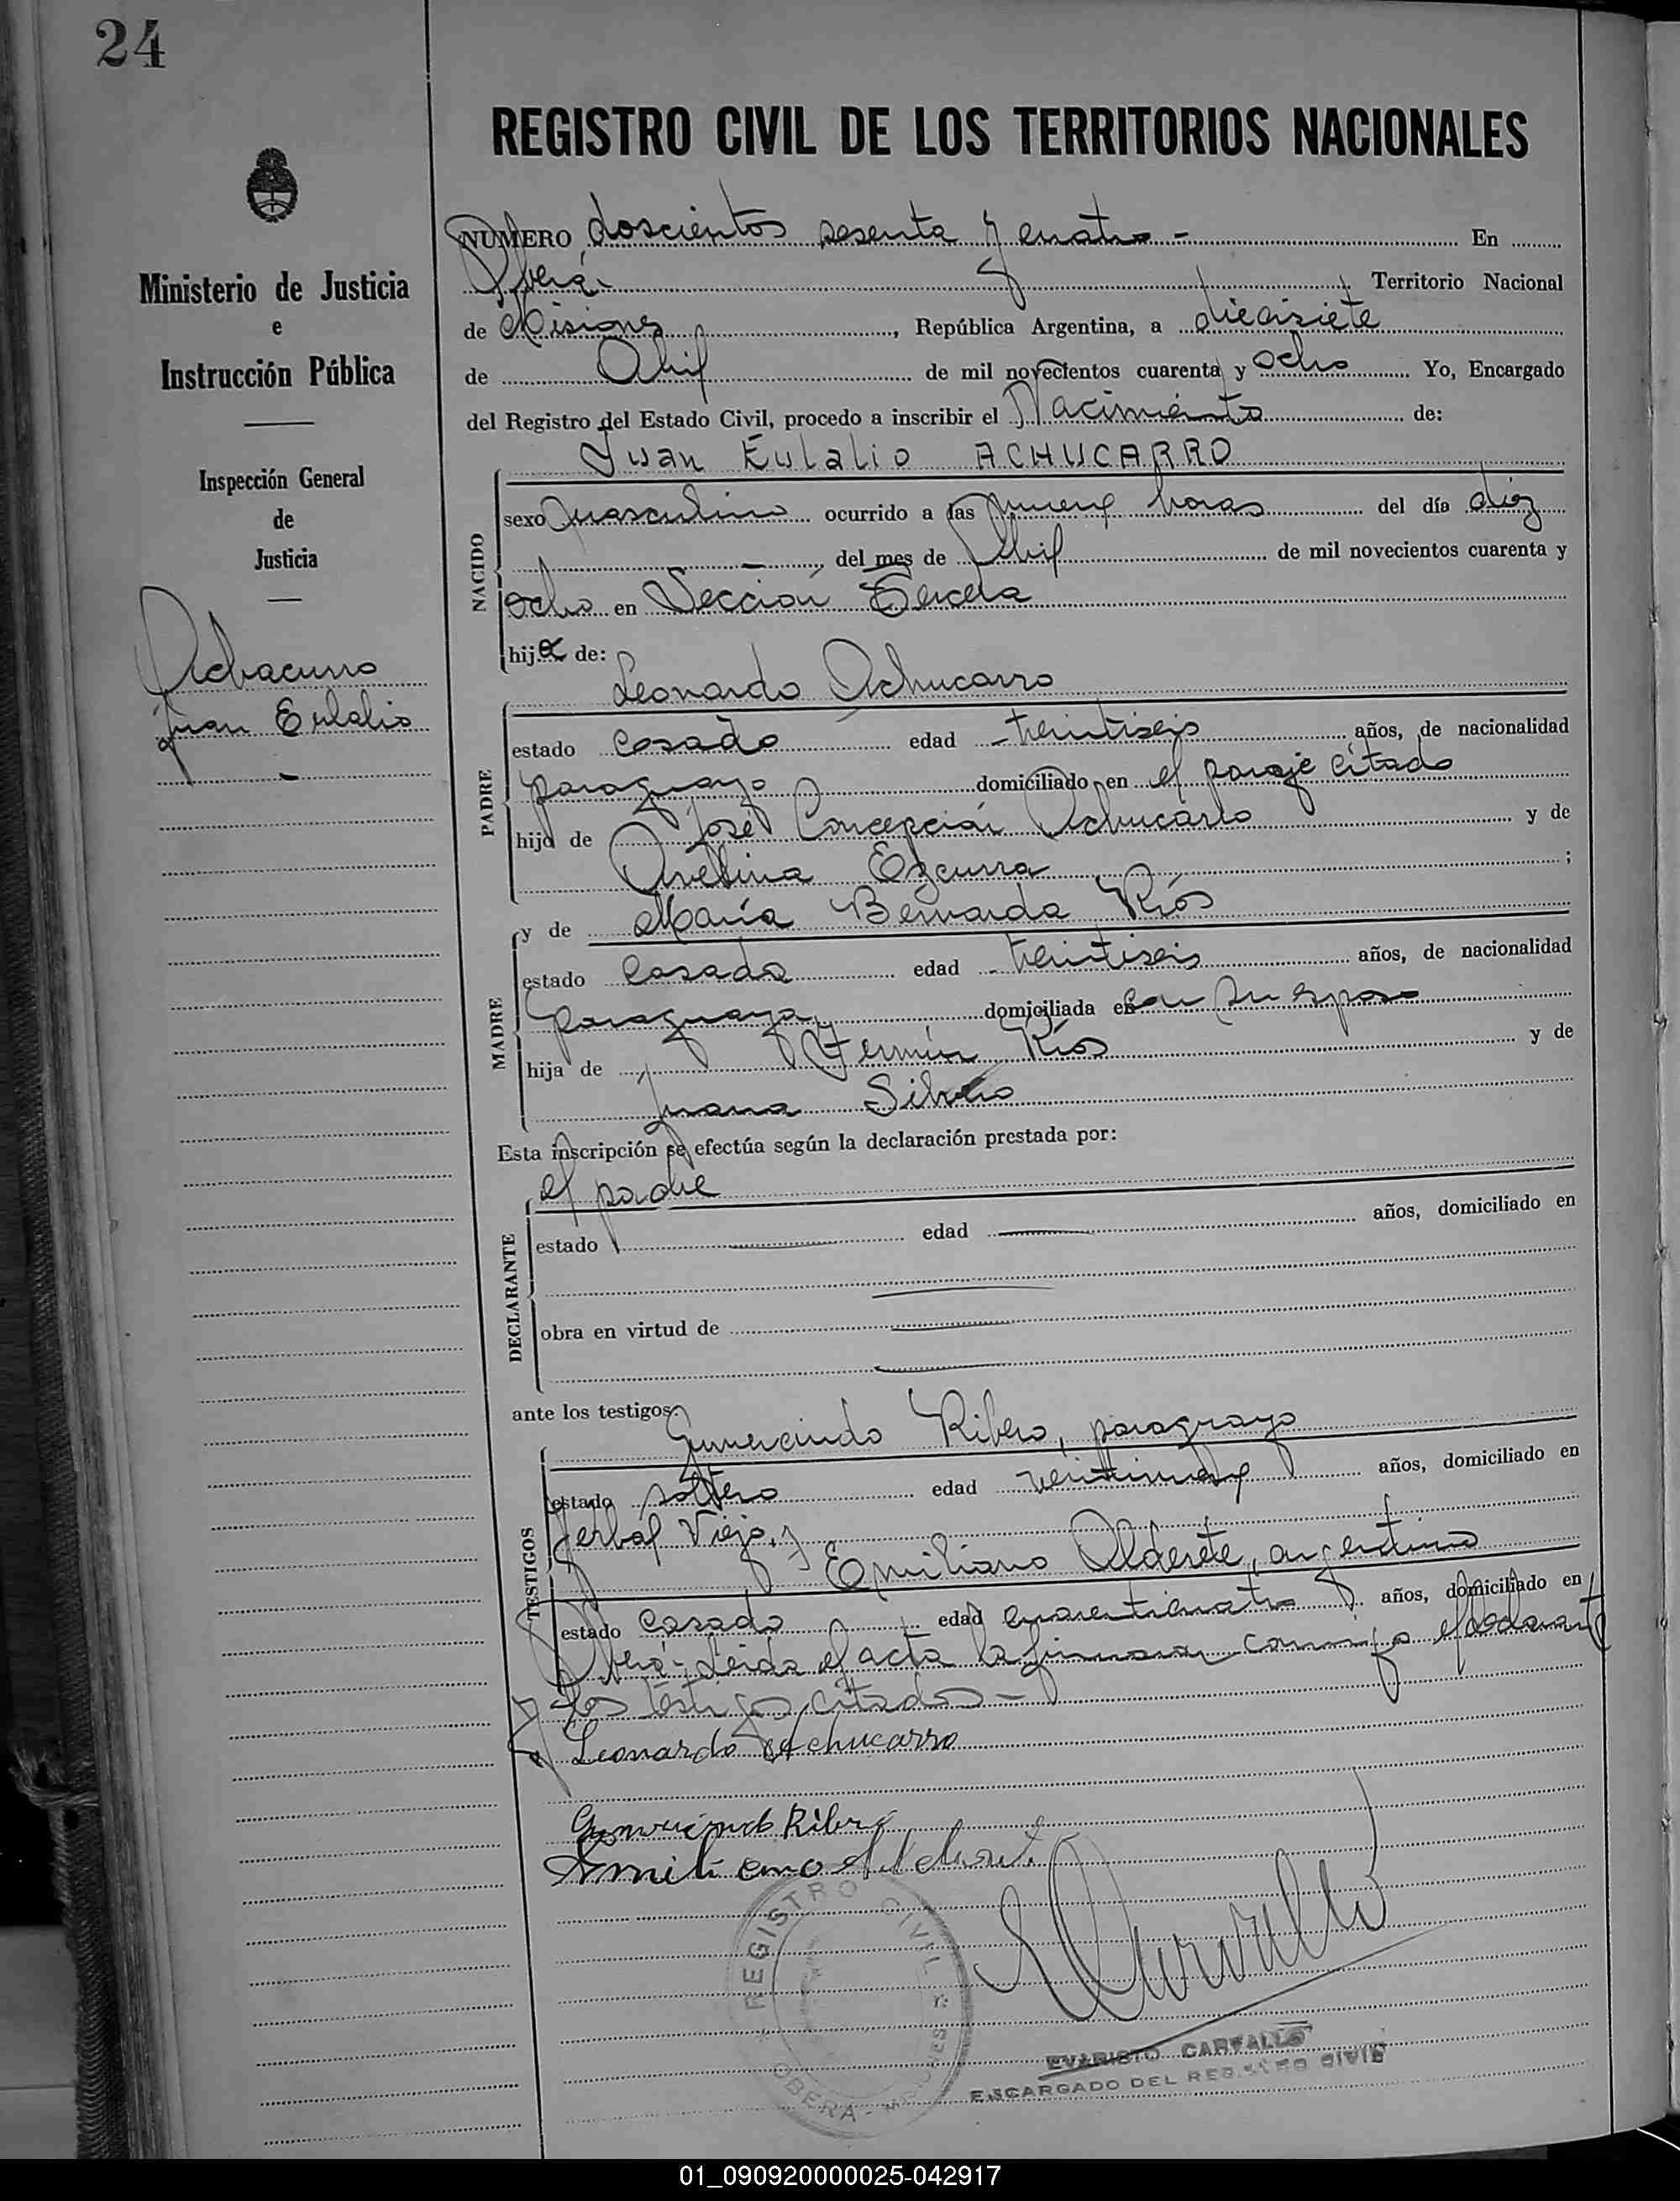 24
REGISTRO CIVIL DE LOS TERRITORIOS NACIONALES
Ministerio de Justicia
e
Instrucción Pública
Inspección General
de
Justicia
Achacurro
Juan Eulalio
NUMERO doscientos sesenta y cuatro - En
Oberá Territorio Nacional
de Misiones, República Argentina, a diecisiete
de Abril de mil novecientos cuarenta y ocho Yo, Encargado
del Registro del Estado Civil, procedo a inscribir el Nacimiento de:
Juan Eulalio ACHUCARRO
NACIDO
sexo masculino ocurrido a las nueve horas del día diez
del mes de Abril de mil novecientos cuarenta y
ocho en Sección Tercera
hijo de:
Leonardo Achucarro
PADRE
estado casado edad treintiseis años, de nacionalidad
paraguayo domiciliado en el paraje citado
hijo de José Concepción Achucarro y de
Avelina Ezcurra ;
y de María Bernarda Ríos
MADRE
estado casada edad treintiseis años, de nacionalidad
paraguaya domiciliada en con su esposo
hija de Fermín Ríos y de
Juana
Esta inscripción se efectúa según la declaración prestada por:
el padre
DECLARANTE
estado edad años, domiciliado en
obra en virtud de
ante los testigos:
Gumercindo Ribero, paraguayo
TESTIGOS
estado soltero edad años, domiciliado en
Yerbal Viejo, y
Emiliano Alderete, argentino
estado casado edad cuarenticuatro años, domiciliado en
Oberá - Leida el acta la firmaron conmigo el declarante
y los testigos citados -
Leonardo Achucarro
Gumercindo Ribero
Emiliano Alderete
REGISTRO CIVIL
OBERA - MISIONES
EVARISTO CARVALLO
ENCARGADO DEL REGISTRO CIVIL
01_090920000025-042917